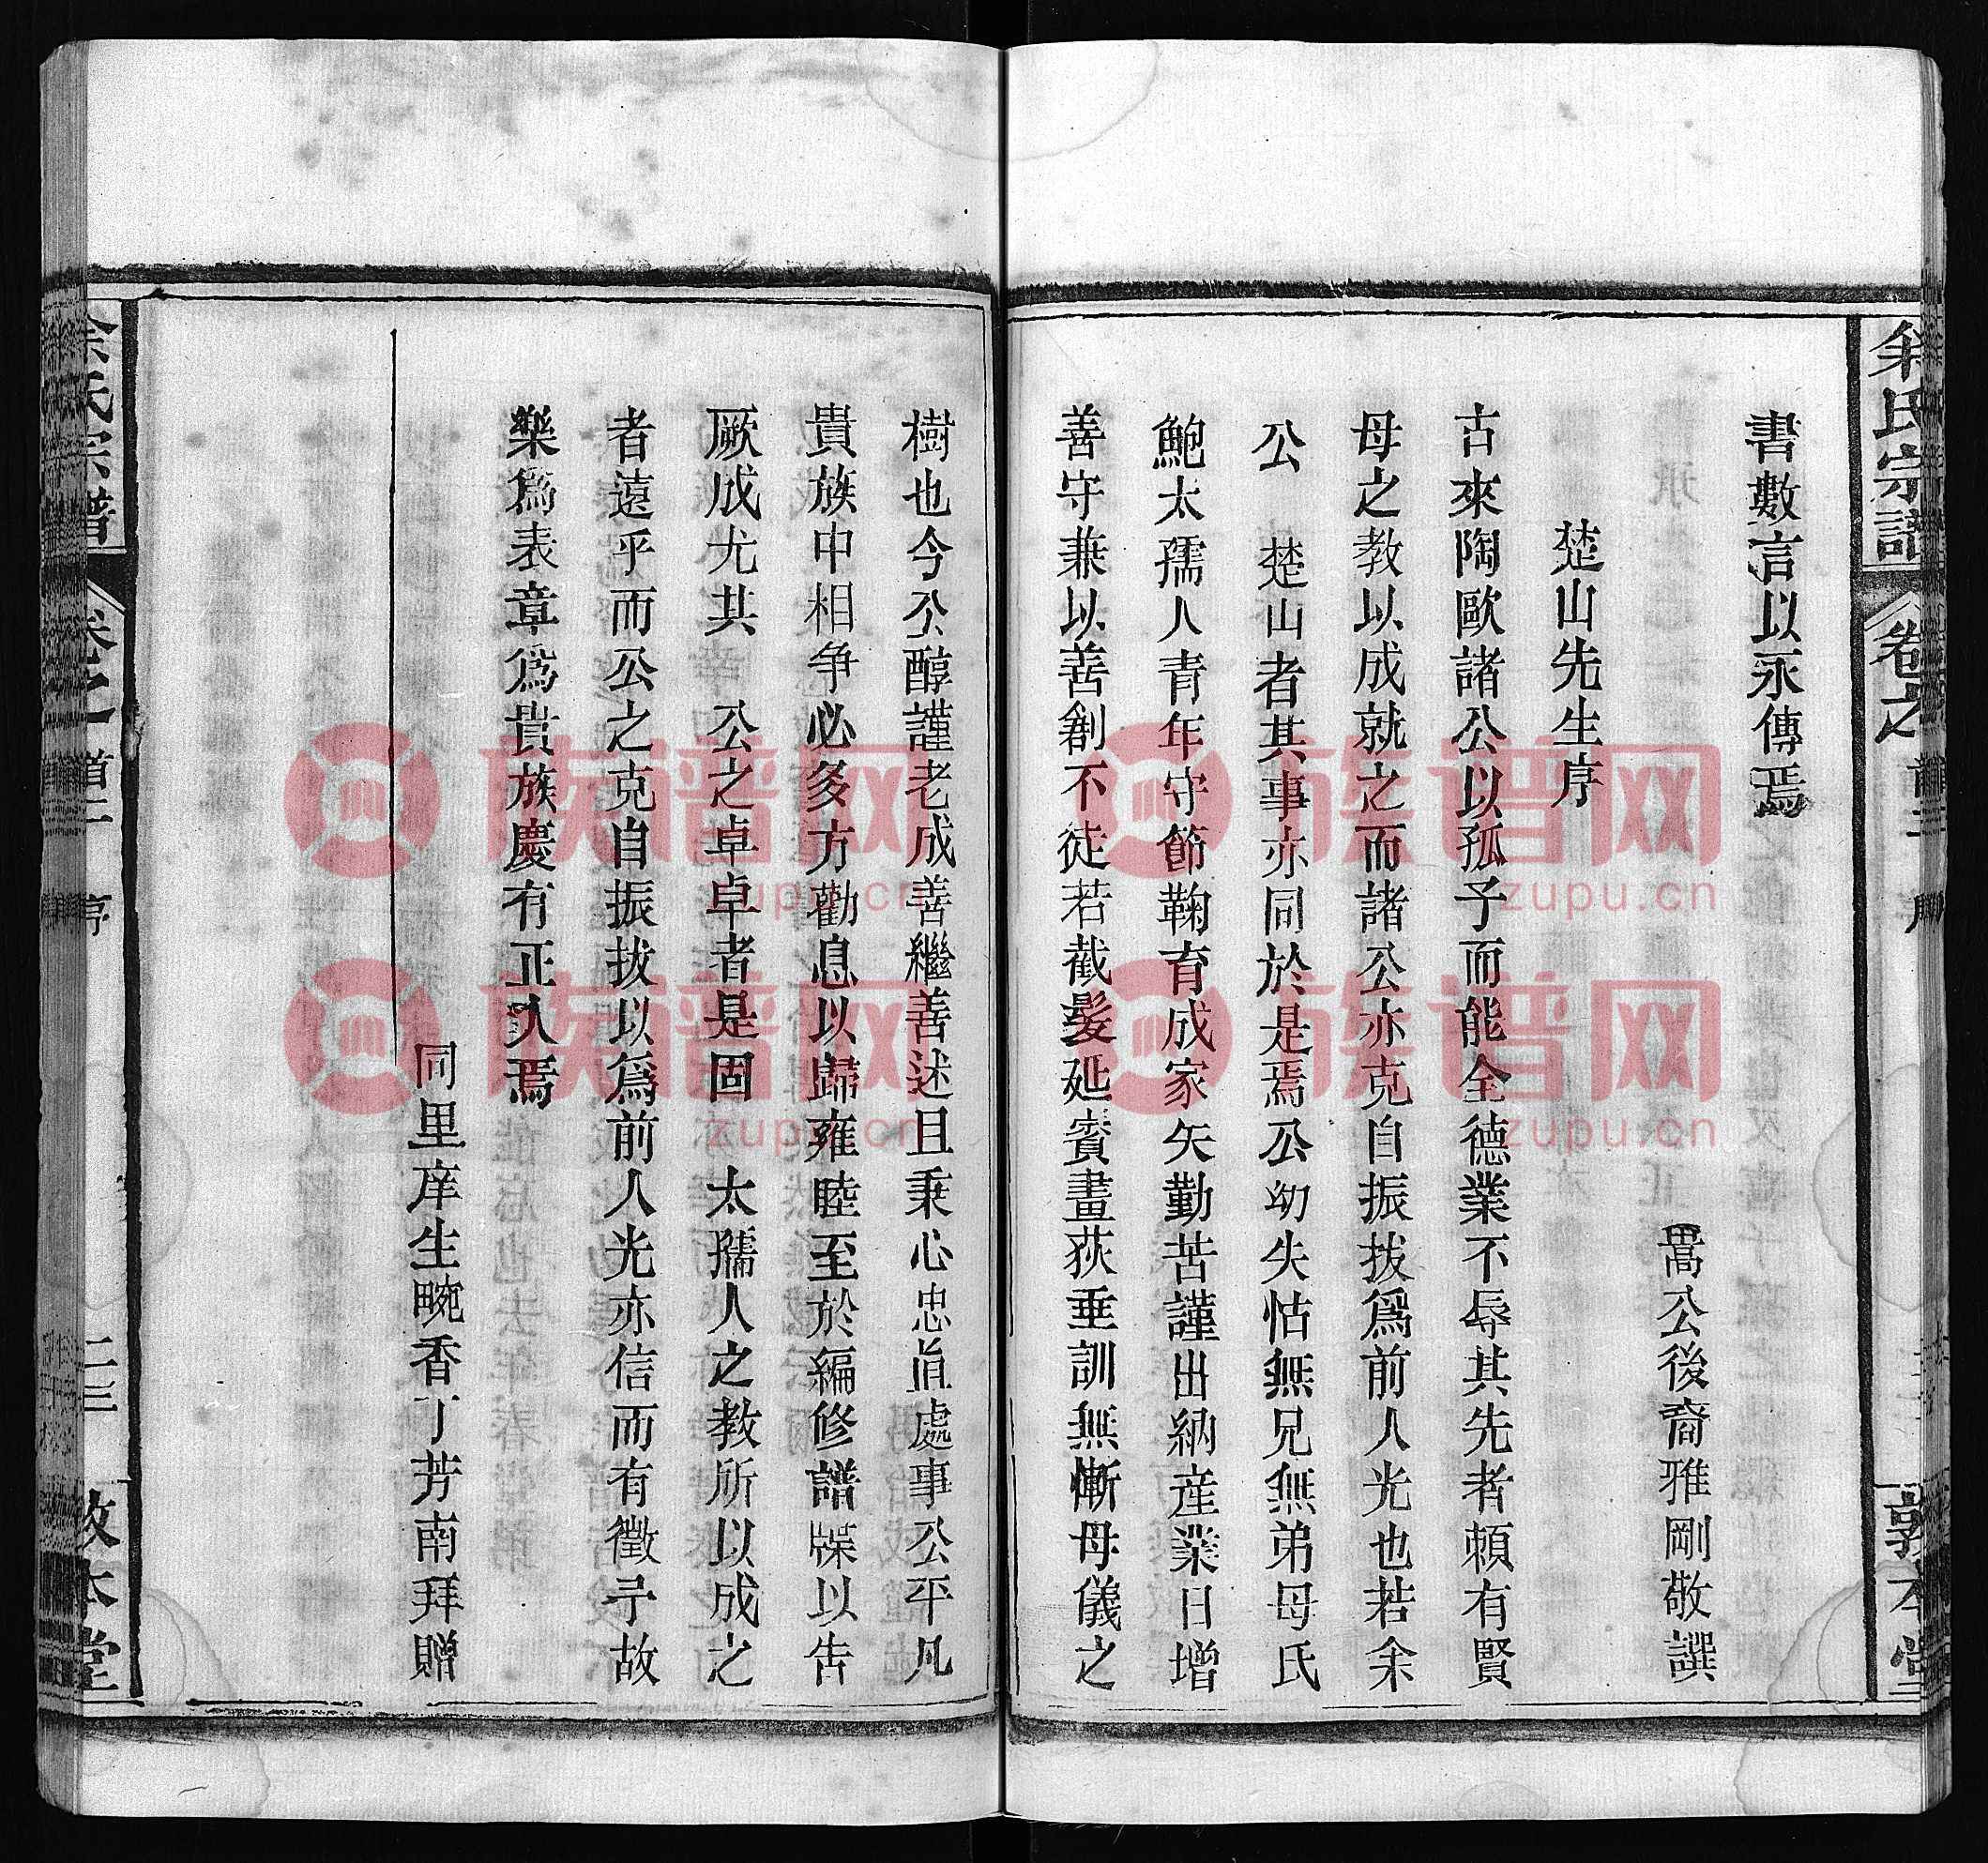 余氏宗譜
卷之
首二
序
敦本堂
書數言以永傳焉
暠公後裔雅剛敬譔
楚山先生序
古來陶歐諸公以孤子而能全德業不辱其先者賴有賢
母之教以成就之而諸公亦克自振拔爲前人光也若余
公　楚山者其事亦同於是焉公幼失怙無兄無弟母氏
鮑太孺人青年守節鞠育成家矢勤苦謹出納産業日增
善守兼以善創不徒若截髮延賓畫荻垂訓無慚母儀之
樹也今公醇謹老成善繼善述且秉心忠直處事公平凡
貴族中相爭必多方勸息以歸雍睦至於編修譜牒以告
厥成尤其　公之卓卓者是固　太孺人之教所以成之
者遠乎而公之克自振拔以爲前人光亦信而有徵予故
樂爲表章爲貴族慶有正人焉
同里庠生畹香丁芳南拜贈
余氏宗譜
卷之一
首二
序
二三
敦本堂
族谱网
zupu.cn
族谱网
zupu.cn
族谱网
zupu.cn
族谱网
zupu.cn